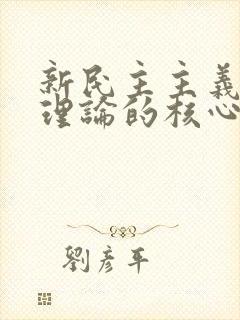 新民主主義
理論的核心
劉彥平